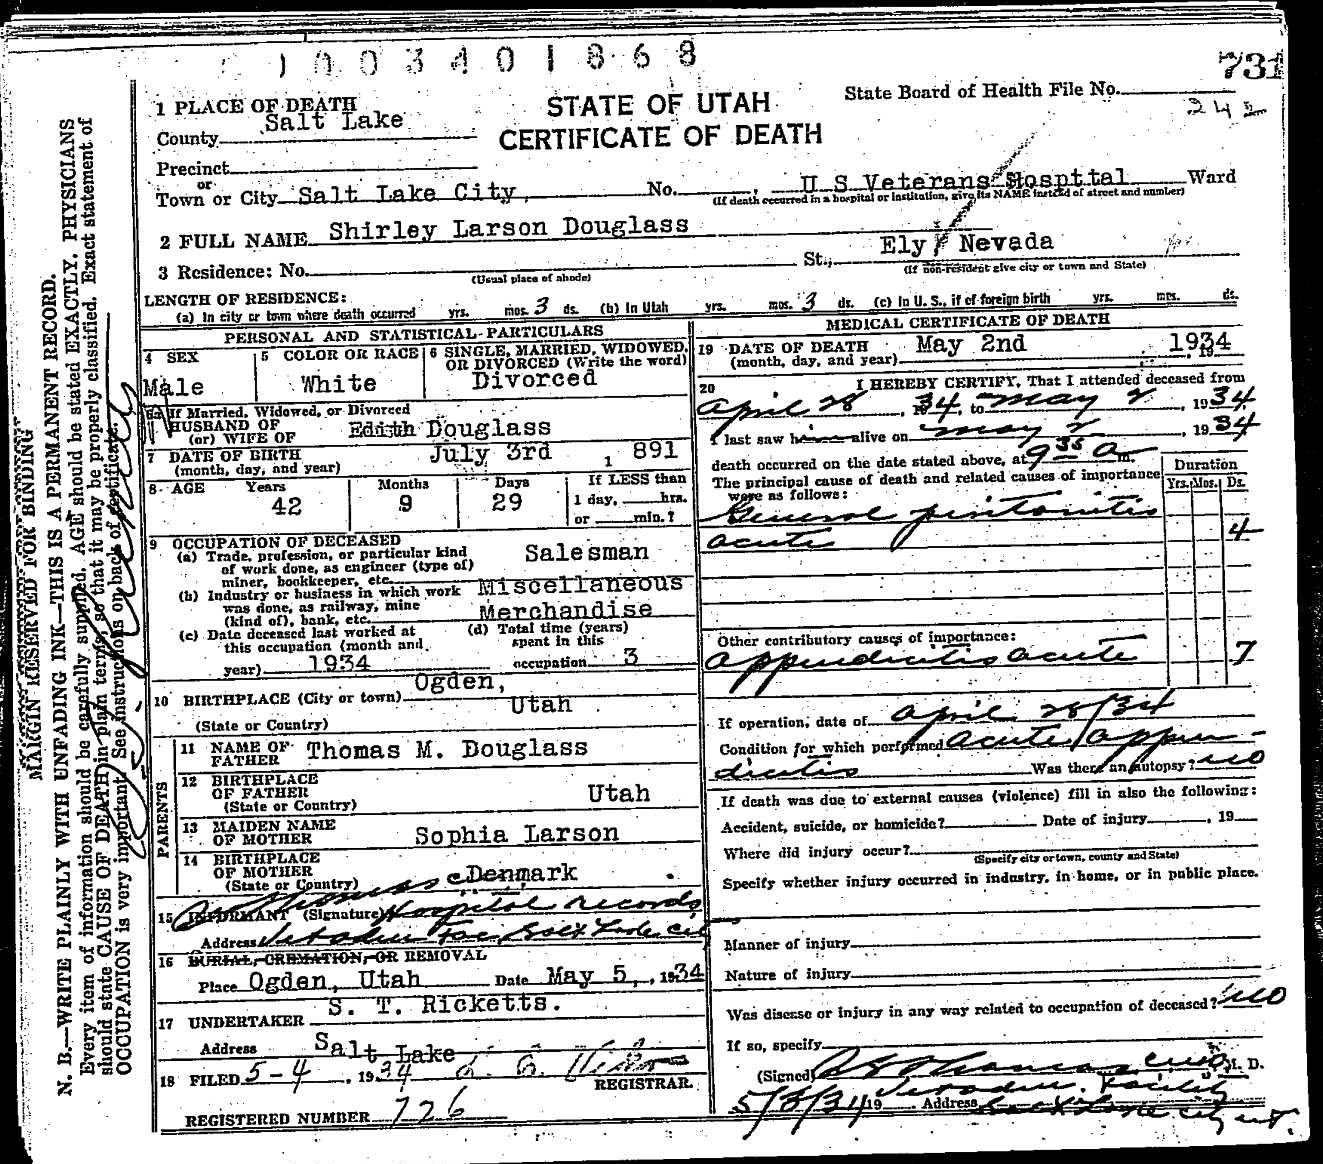 1003401868
731
STATE OF UTAH
CERTIFICATE OF DEATH
State Board of Health File No.
242
1 PLACE OF DEATH
County Salt Lake
Precinct
or
Town or City Salt Lake City, No. , U S Veterans Hospttal Ward
(If death occurred in a hospital or institution, give its NAME instead of street and number)
2 FULL NAME Shirley Larson Douglass
3 Residence: No. St., Ely, Nevada
(Usual place of abode) (If non-resident give city or town and State)
LENGTH OF RESIDENCE:
(a) In city or town where death occurred yrs. mos. 3 ds. (b) In Utah yrs. mos. 3 ds. (c) In U. S., if of foreign birth yrs. mos. ds.
PERSONAL AND STATISTICAL PARTICULARS
4 SEX
Male
5 COLOR OR RACE
White
6 SINGLE, MARRIED, WIDOWED, OR DIVORCED (Write the word)
Divorced
5a If Married, Widowed, or Divorced
HUSBAND OF
(or) WIFE OF Edith Douglass
7 DATE OF BIRTH July 3rd 1 891
(month, day, and year)
8 AGE Years 42 Months 9 Days 29
If LESS than
1 day, hrs.
or min.?
9 OCCUPATION OF DECEASED
(a) Trade, profession, or particular kind
of work done, as engineer (type of)
miner, bookkeeper, etc. Salesman
(b) Industry or business in which work
was done, as railway, mine
(kind of), bank, etc. Miscellaneous Merchandise
(c) Date deceased last worked at
this occupation (month and
year) 1934
(d) Total time (years)
spent in this
occupation 3
10 BIRTHPLACE (City or town) Ogden,
(State or Country) Utah
PARENTS
11 NAME OF FATHER Thomas M. Douglass
12 BIRTHPLACE OF FATHER
(State or Country) Utah
13 MAIDEN NAME OF MOTHER Sophia Larson
14 BIRTHPLACE OF MOTHER
(State or Country) Denmark
15 INFORMANT (Signature) Hospital records
Address Salt Lake City
16 BURIAL, CREMATION, OR REMOVAL
Place Ogden, Utah Date May 5, , 1934
17 UNDERTAKER S. T. Ricketts.
Address Salt Lake
18 FILED 5-4 , 1934
REGISTRAR.
REGISTERED NUMBER 726
MEDICAL CERTIFICATE OF DEATH
19 DATE OF DEATH May 2nd 1934
(month, day, and year) , 19
20 I HEREBY CERTIFY, That I attended deceased from
April 28 , 1934, to May 2 , 1934,
I last saw him alive on May 2 , 1934
death occurred on the date stated above, at 9 35 A m.
The principal cause of death and related causes of importance
were as follows:
Duration
Yrs. Mos. Ds.
General peritonitis
acute 4
Other contributory causes of importance:
Appendicitis acute 7
If operation, date of April 28/34
Condition for which performed acute appen-
dicitis Was there an autopsy? no
If death was due to external causes (violence) fill in also the following:
Accident, suicide, or homicide? Date of injury , 19
Where did injury occur?
(Specify city or town, county and State)
Specify whether injury occurred in industry, in home, or in public place.
Manner of injury
Nature of injury
Was disease or injury in any way related to occupation of deceased? no
If so, specify
(Signed) M. D.
5/3/34 19 Address Vet. Adm. Facility
Salt Lake City Ut.
MARGIN RESERVED FOR BINDING
N. B.—WRITE PLAINLY WITH UNFADING INK—THIS IS A PERMANENT RECORD.
Every item of information should be carefully supplied. AGE should be stated EXACTLY. PHYSICIANS
should state CAUSE OF DEATH in plain terms, so that it may be properly classified. Exact statement of
OCCUPATION is very important. See instructions on back of certificate.